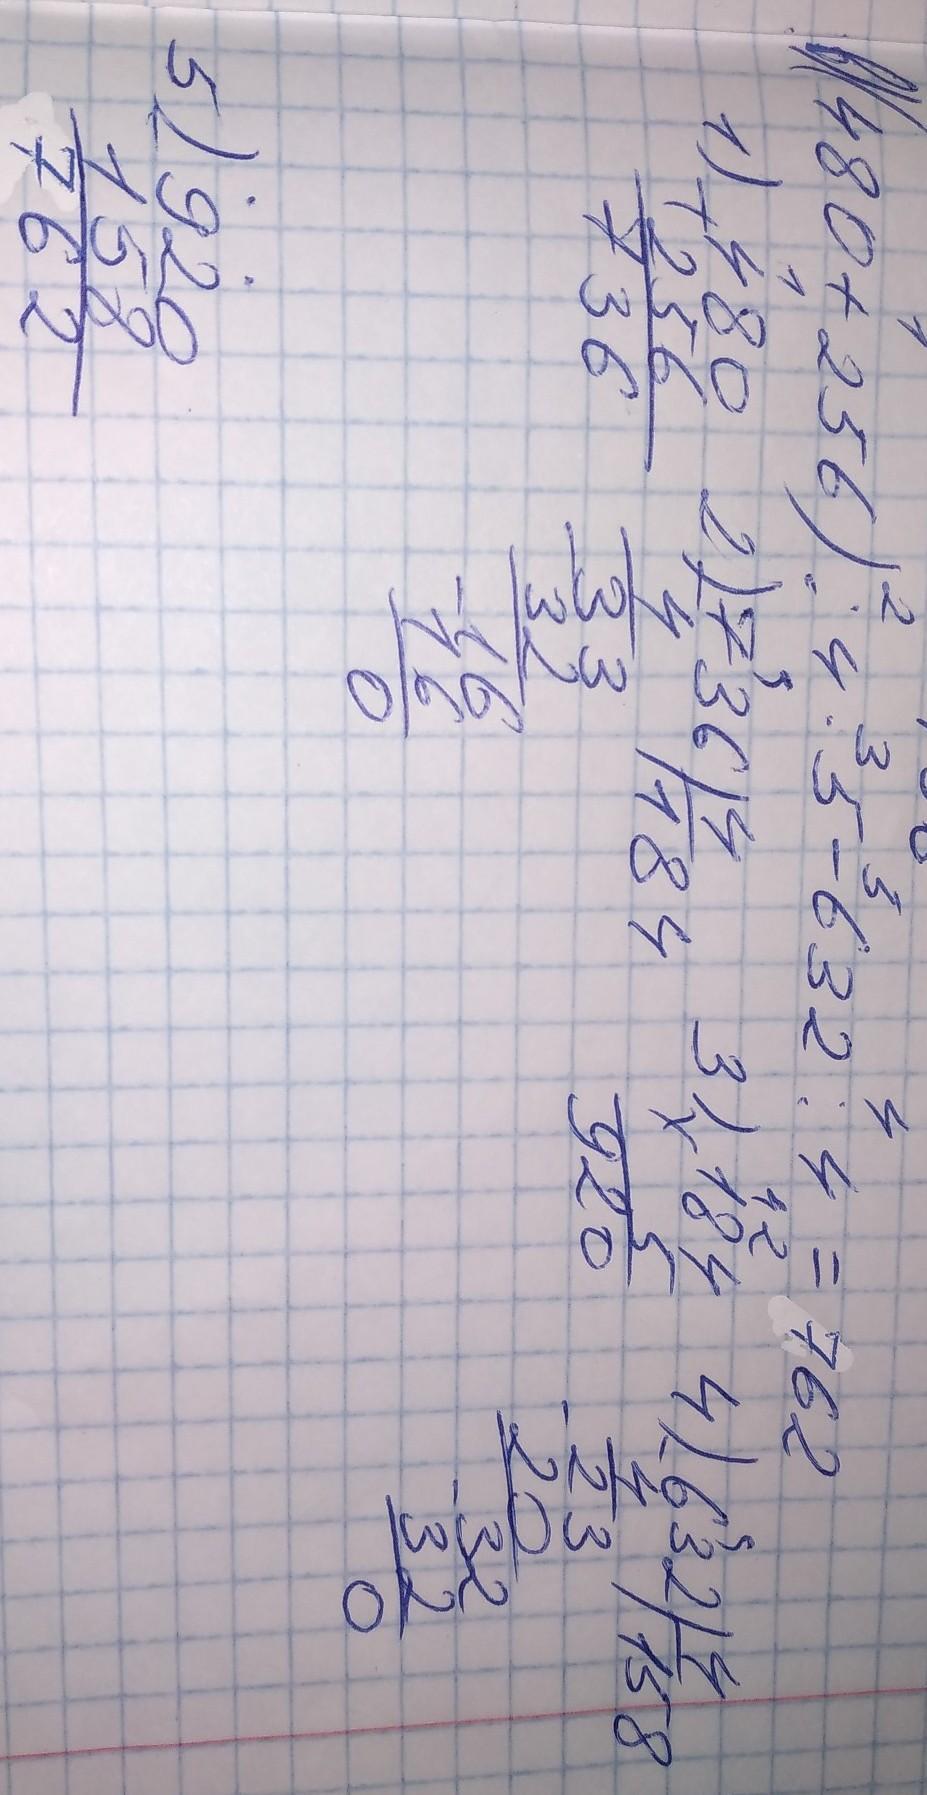 (480+256):4·5-632:4=762
1 2 3 5 4
1) +480 256 736
2) 736|4 184
4
-33
32
-16
16
0
3) ×184 5 920
4) 632|4 158
4
-23
20
-32
32
0
5) 920
158
762